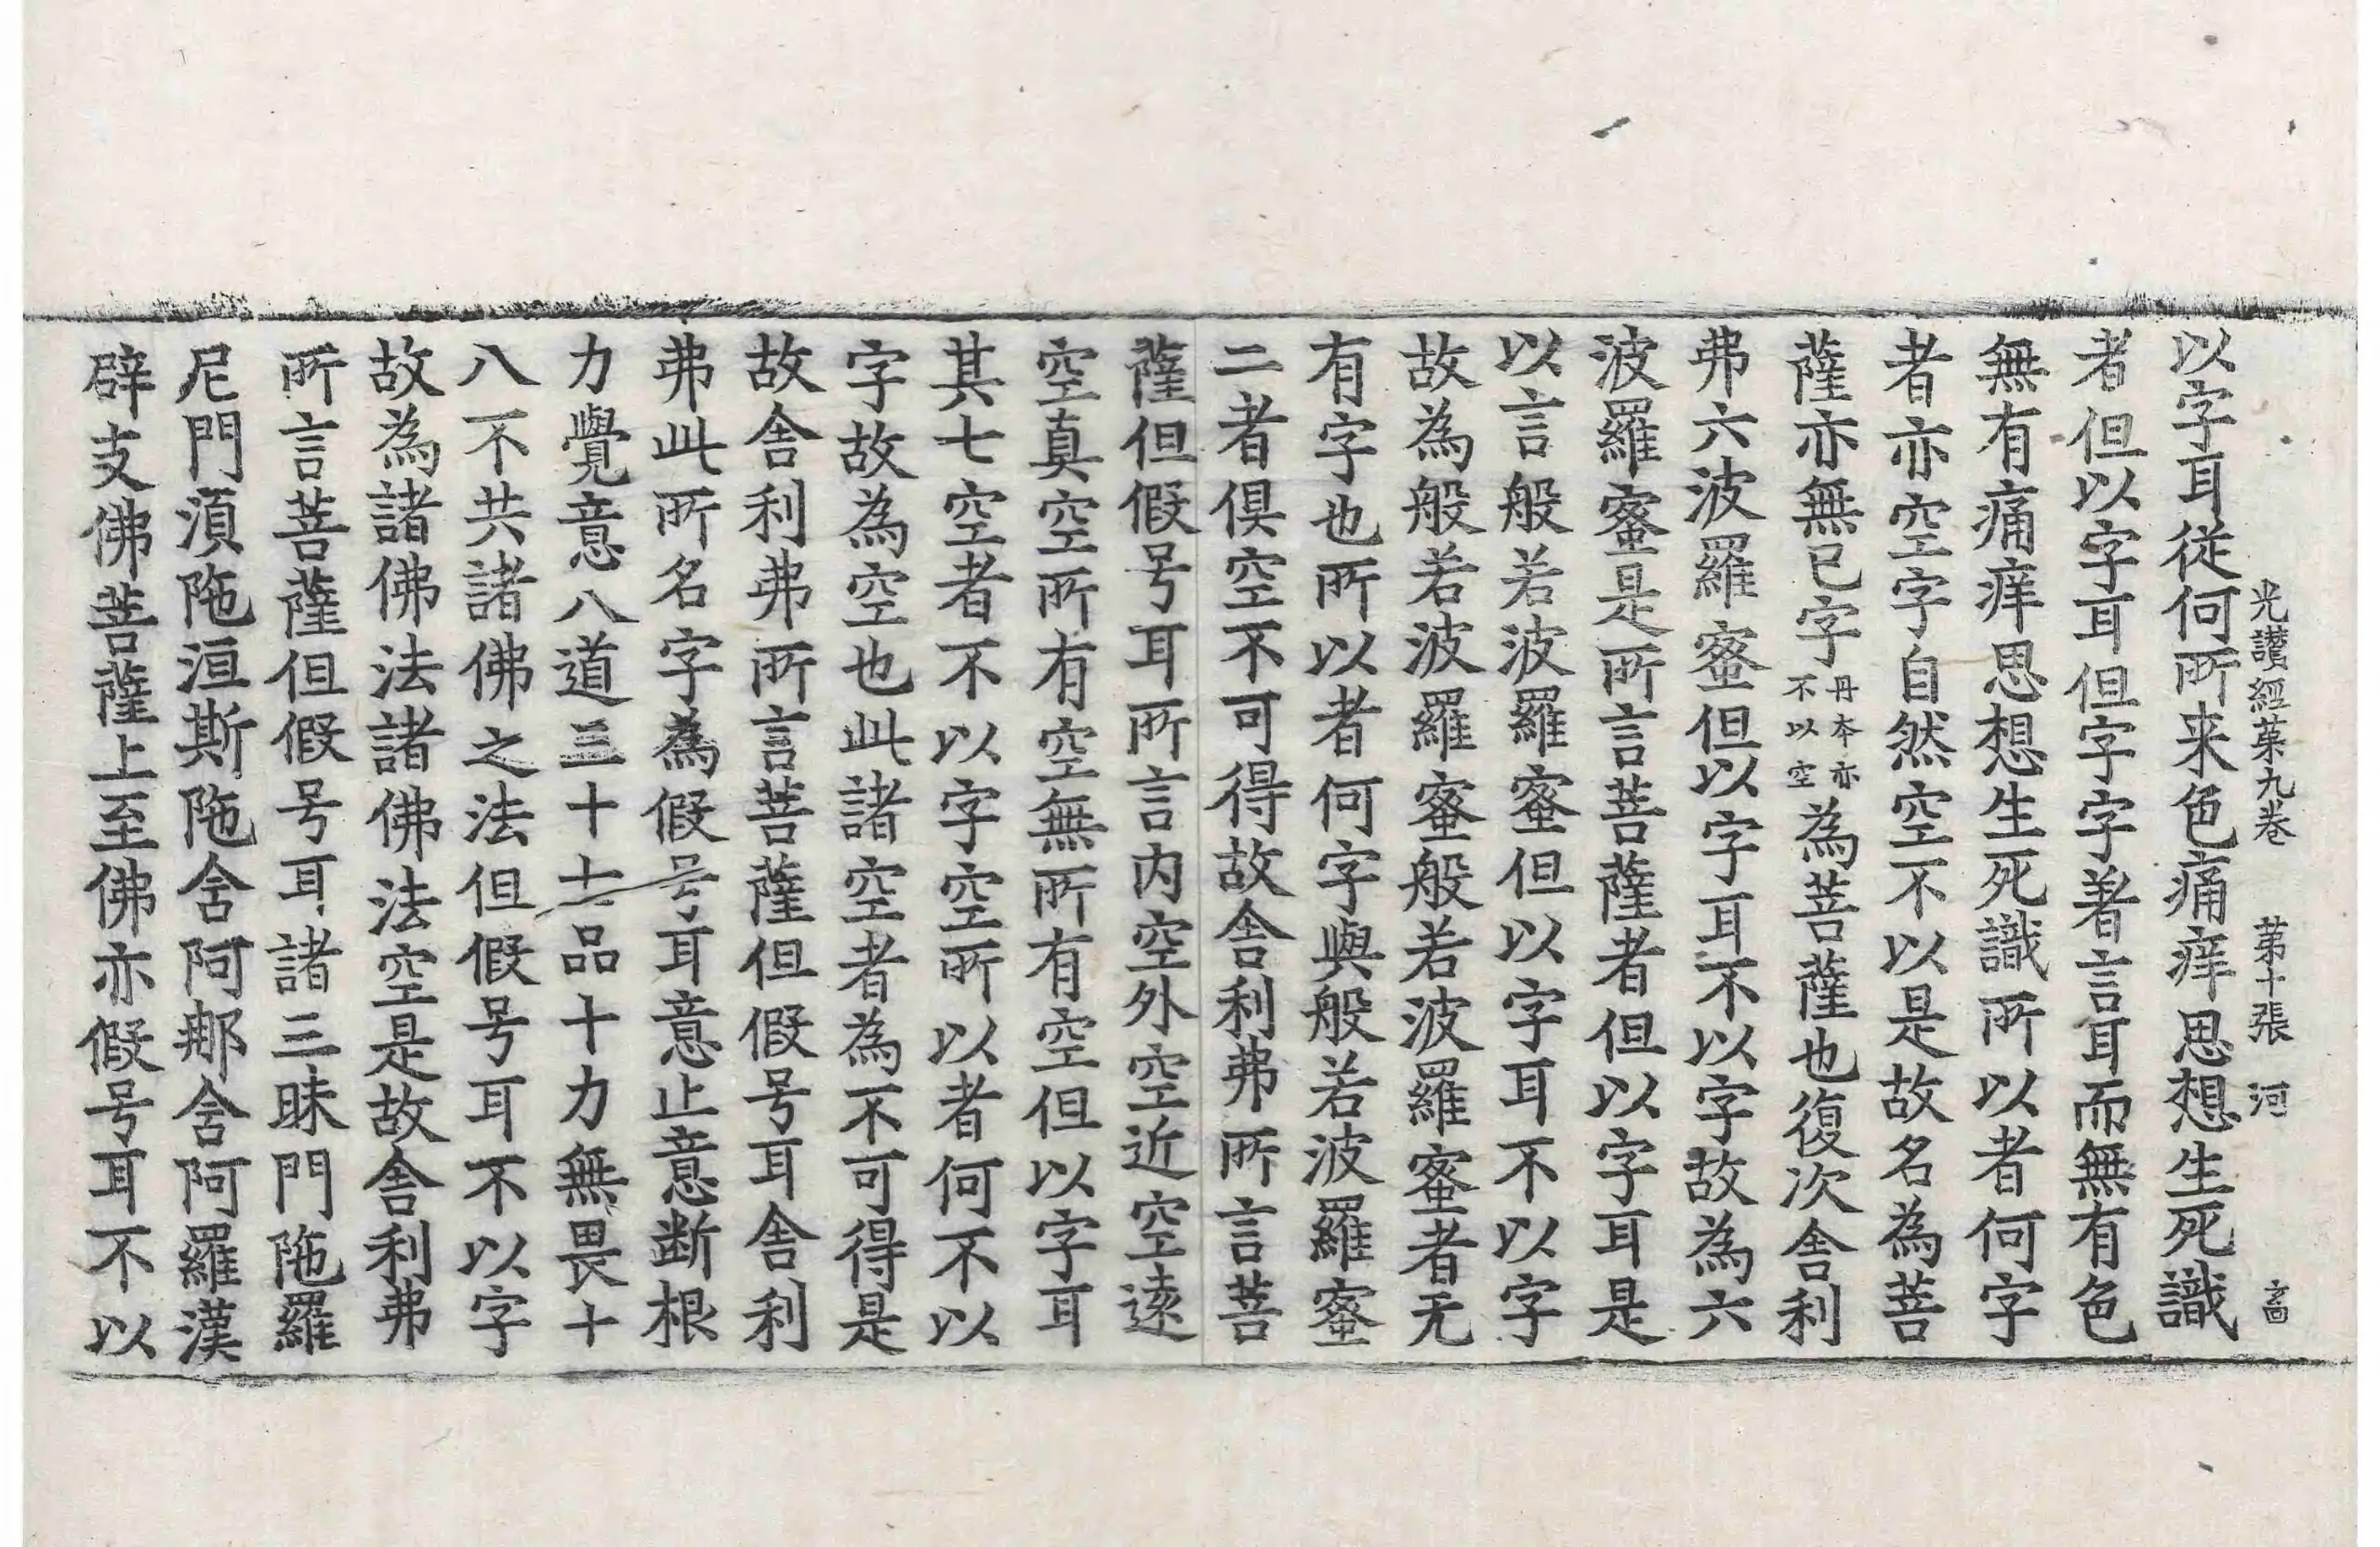 光讃經苐九卷 苐十張 河
以字耳従何所来色痛痒思想生死識
者但以字耳但字字著言耳而無有色
無有痛痒思想生死識所以者何字
者亦空字自然空不以是故名為菩
薩亦無已字丹本亦不以空為菩薩也復次舎利
弗六波羅蜜但以字耳不以字故為六
波羅蜜是所言菩薩者但以字耳是
以言般若波羅蜜但以字耳不以字
故為般若波羅蜜般若波羅蜜者无
有字也所以者何字與般若波羅蜜
二者俱空不可得故舎利弗所言菩
薩但假号耳所言内空外空近空遠
空真空所有空無所有空但以字耳
其七空者不以字空所以者何不以
字故為空也此諸空者為不可得是
故舎利弗所言菩薩但假号耳舎利
弗此所名字為假号耳意止意断根
力覺意八道三十七品十力無畏十
八不共諸佛之法但假号耳不以字
故為諸佛法諸佛法空是故舎利弗
所言菩薩但假号耳諸三昧門陁羅
尼門湏陁洹斯陁舎阿那舎阿羅漢
辟支佛菩薩上至佛亦假号耳不以